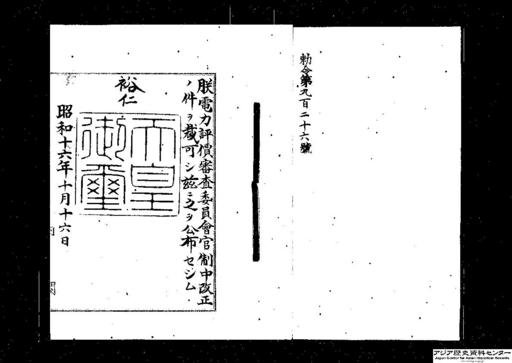 勅令第九百二十六號
朕電力評價審査委員會官制中改正
ノ件ヲ裁可シ茲ニ之ヲ公布セシム
裕仁
天皇御璽
昭和十六年十月十六日
アジア歴史資料センター
Japan Center for Asian Historical Records